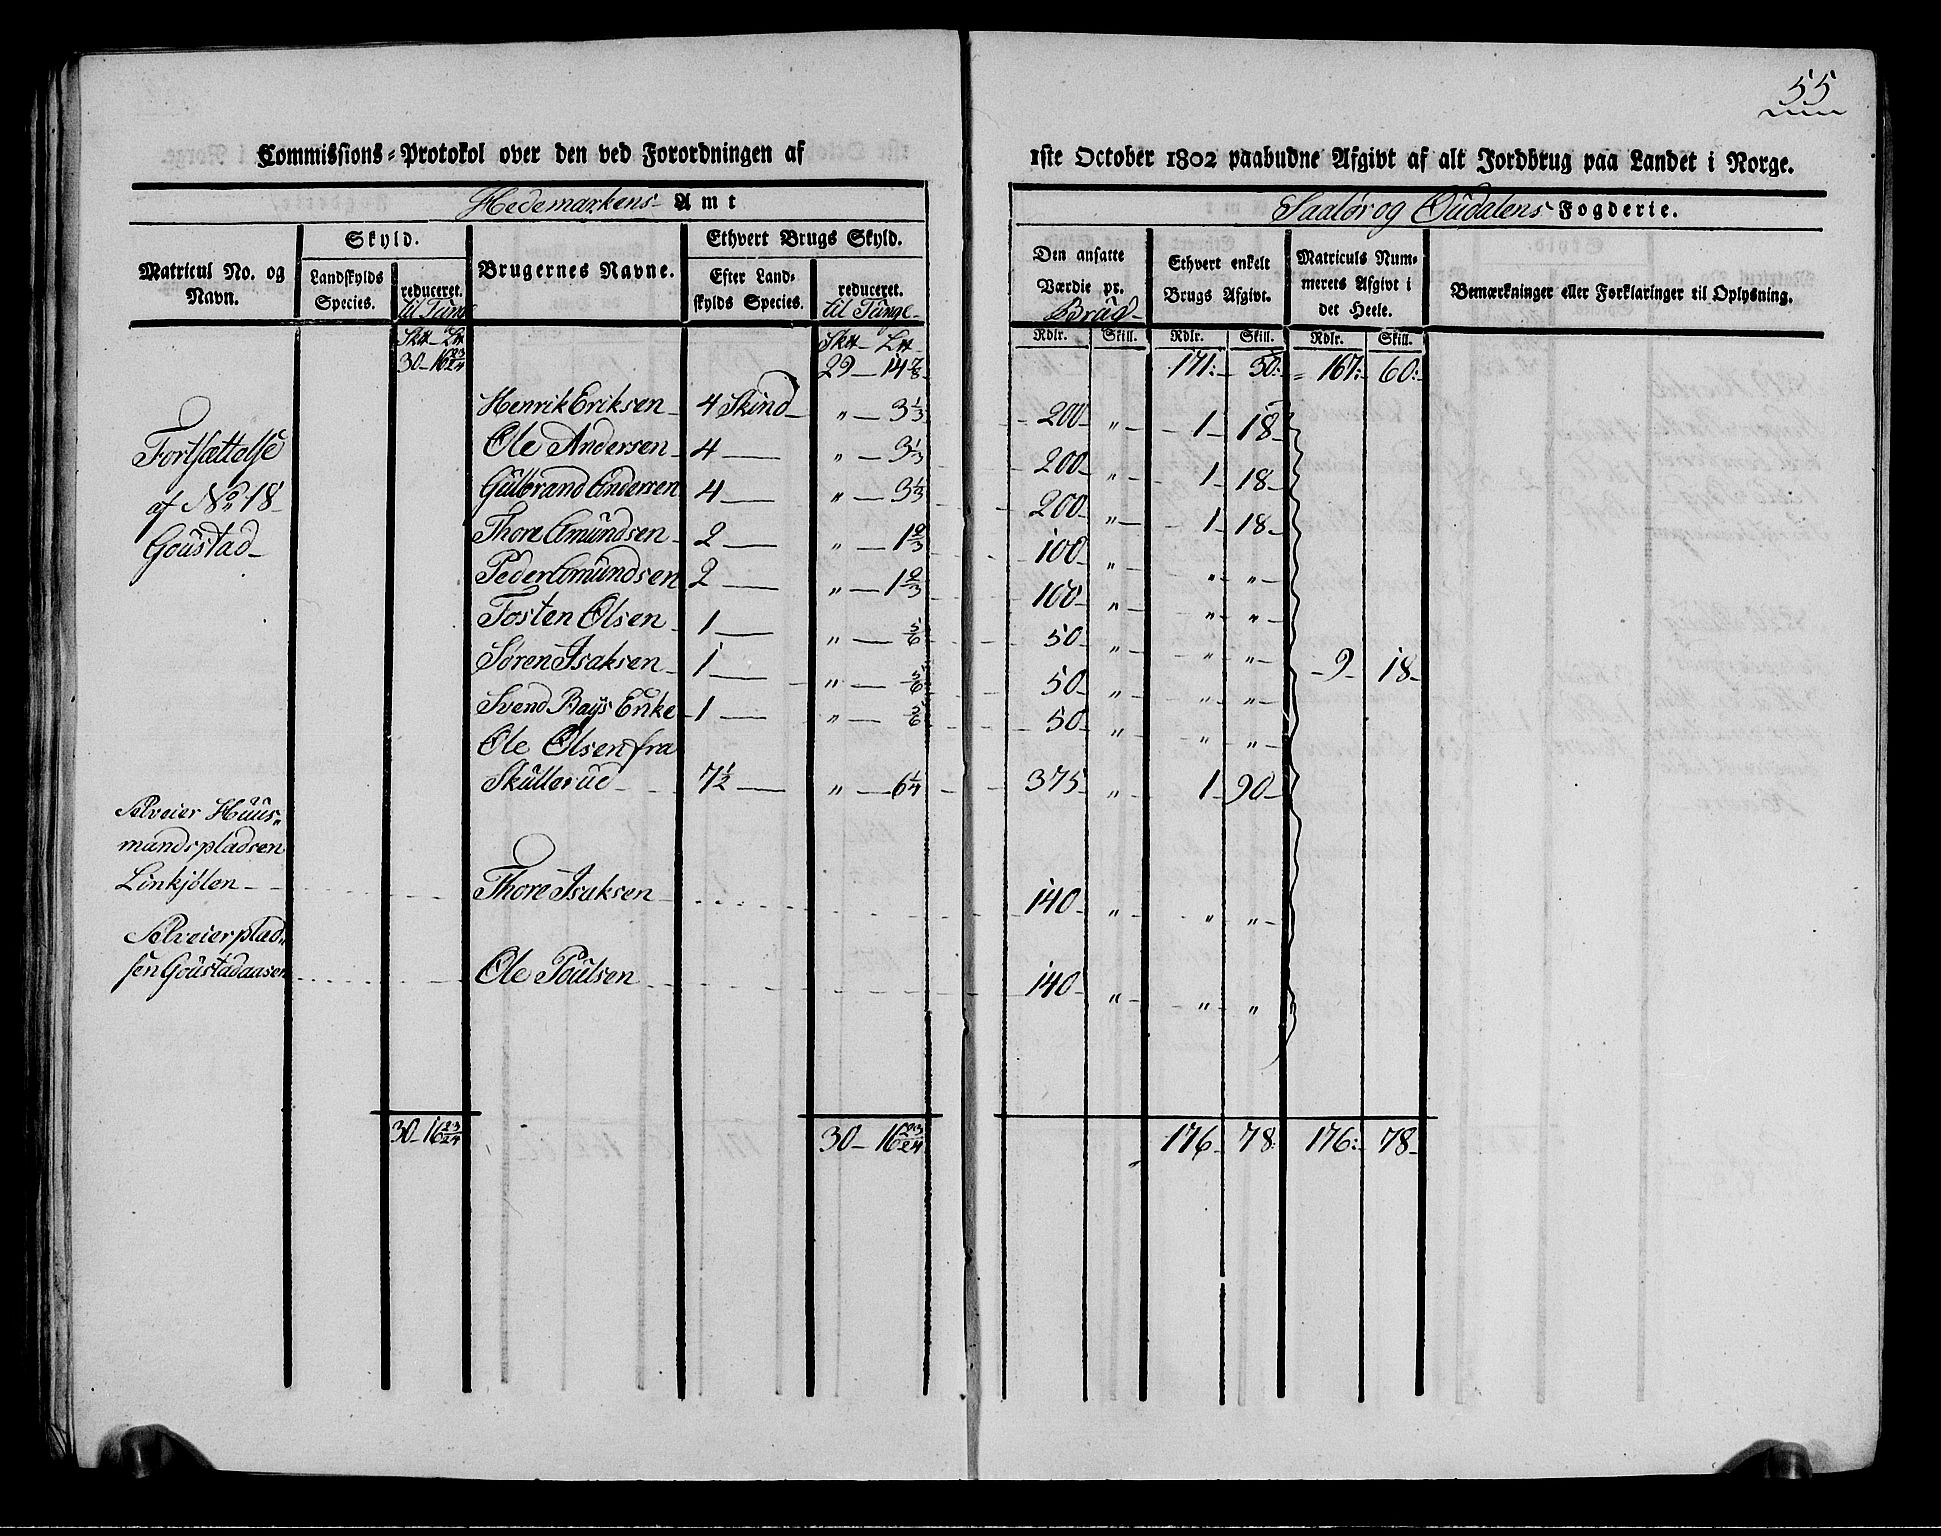 55
Commissions-Protokol over den ved Forordningen af 1ste October 1802 paabudne Afgivt af alt Jordbrug paa Landet i Norge.
Hedemarkens Amt
Saalør og Oudalens Fogderie.
Matricul No. og Navn.
Skyld.
Landskylds Species.
reduceret.
Brugernes Navne.
Ethvert Brugs Skyld.
Efter Landskylds Species.
reduceret. til Tunge
Den ansatte Værdie pr. Brug
Ethvert enkelt Brugs Afgivt.
Matriculs Nummerets Afgivt i det Heele.
Bemærkninger eller Forklaringer til Oplysning.
Rdlr. Skill. Rdlr. Skill. Rdlr. Skill.
30 - 16 23/24 29 - 14 7/8 171: 50: 167: 60:
Henrik Eriksen 4 Skind " - 3 1/3 200 " 1 18
Fortsættelse
Ole Andersen 4 — " - 3 1/3 200 " 1 18
af No 18
Gulbrand Andersen 4 — " - 3 1/3 200 " 1 18
Goustad
Thore Amundsen 2 — " - 1 2/3 100 " " "
Peder Amundsen 2 — " - 1 2/3 100 " " "
Tosten Olsen 1 — " - 5/6 50 " " "
Søren Isaksen 1 — " - 5/6 50 " " " 9 18
Svend Bays Enke 1 — " - 5/6 50 " " "
Ole Olsen fra
Skullerud 7 1/2 — " - 6 1/4 375 " 1 90
Selveier Huus-
mandspladsen
Linkjølen Thore Isaksen 140 " " "
Selveierplad-
sen Goustadaasen Ole Poulsen 140 " " "
30 - 16 23/24 30 - 16 23/24 176 78: 176: 78